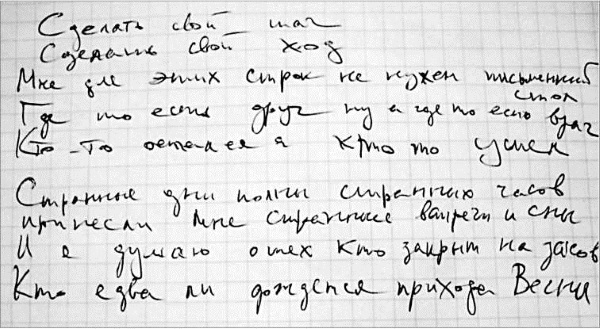 Сделать свой шаг
Сделать свой ход
Мне для этих строк не нужен письменный
стол
Где то есть друг ну а где то есть враг
Кто-то остался а кто то ушел
Странные дни полны странных часов
принесли мне странные встречи и сны
И я думаю о тех кто закрыт на засов
Кто едва ли дождется прихода Весны